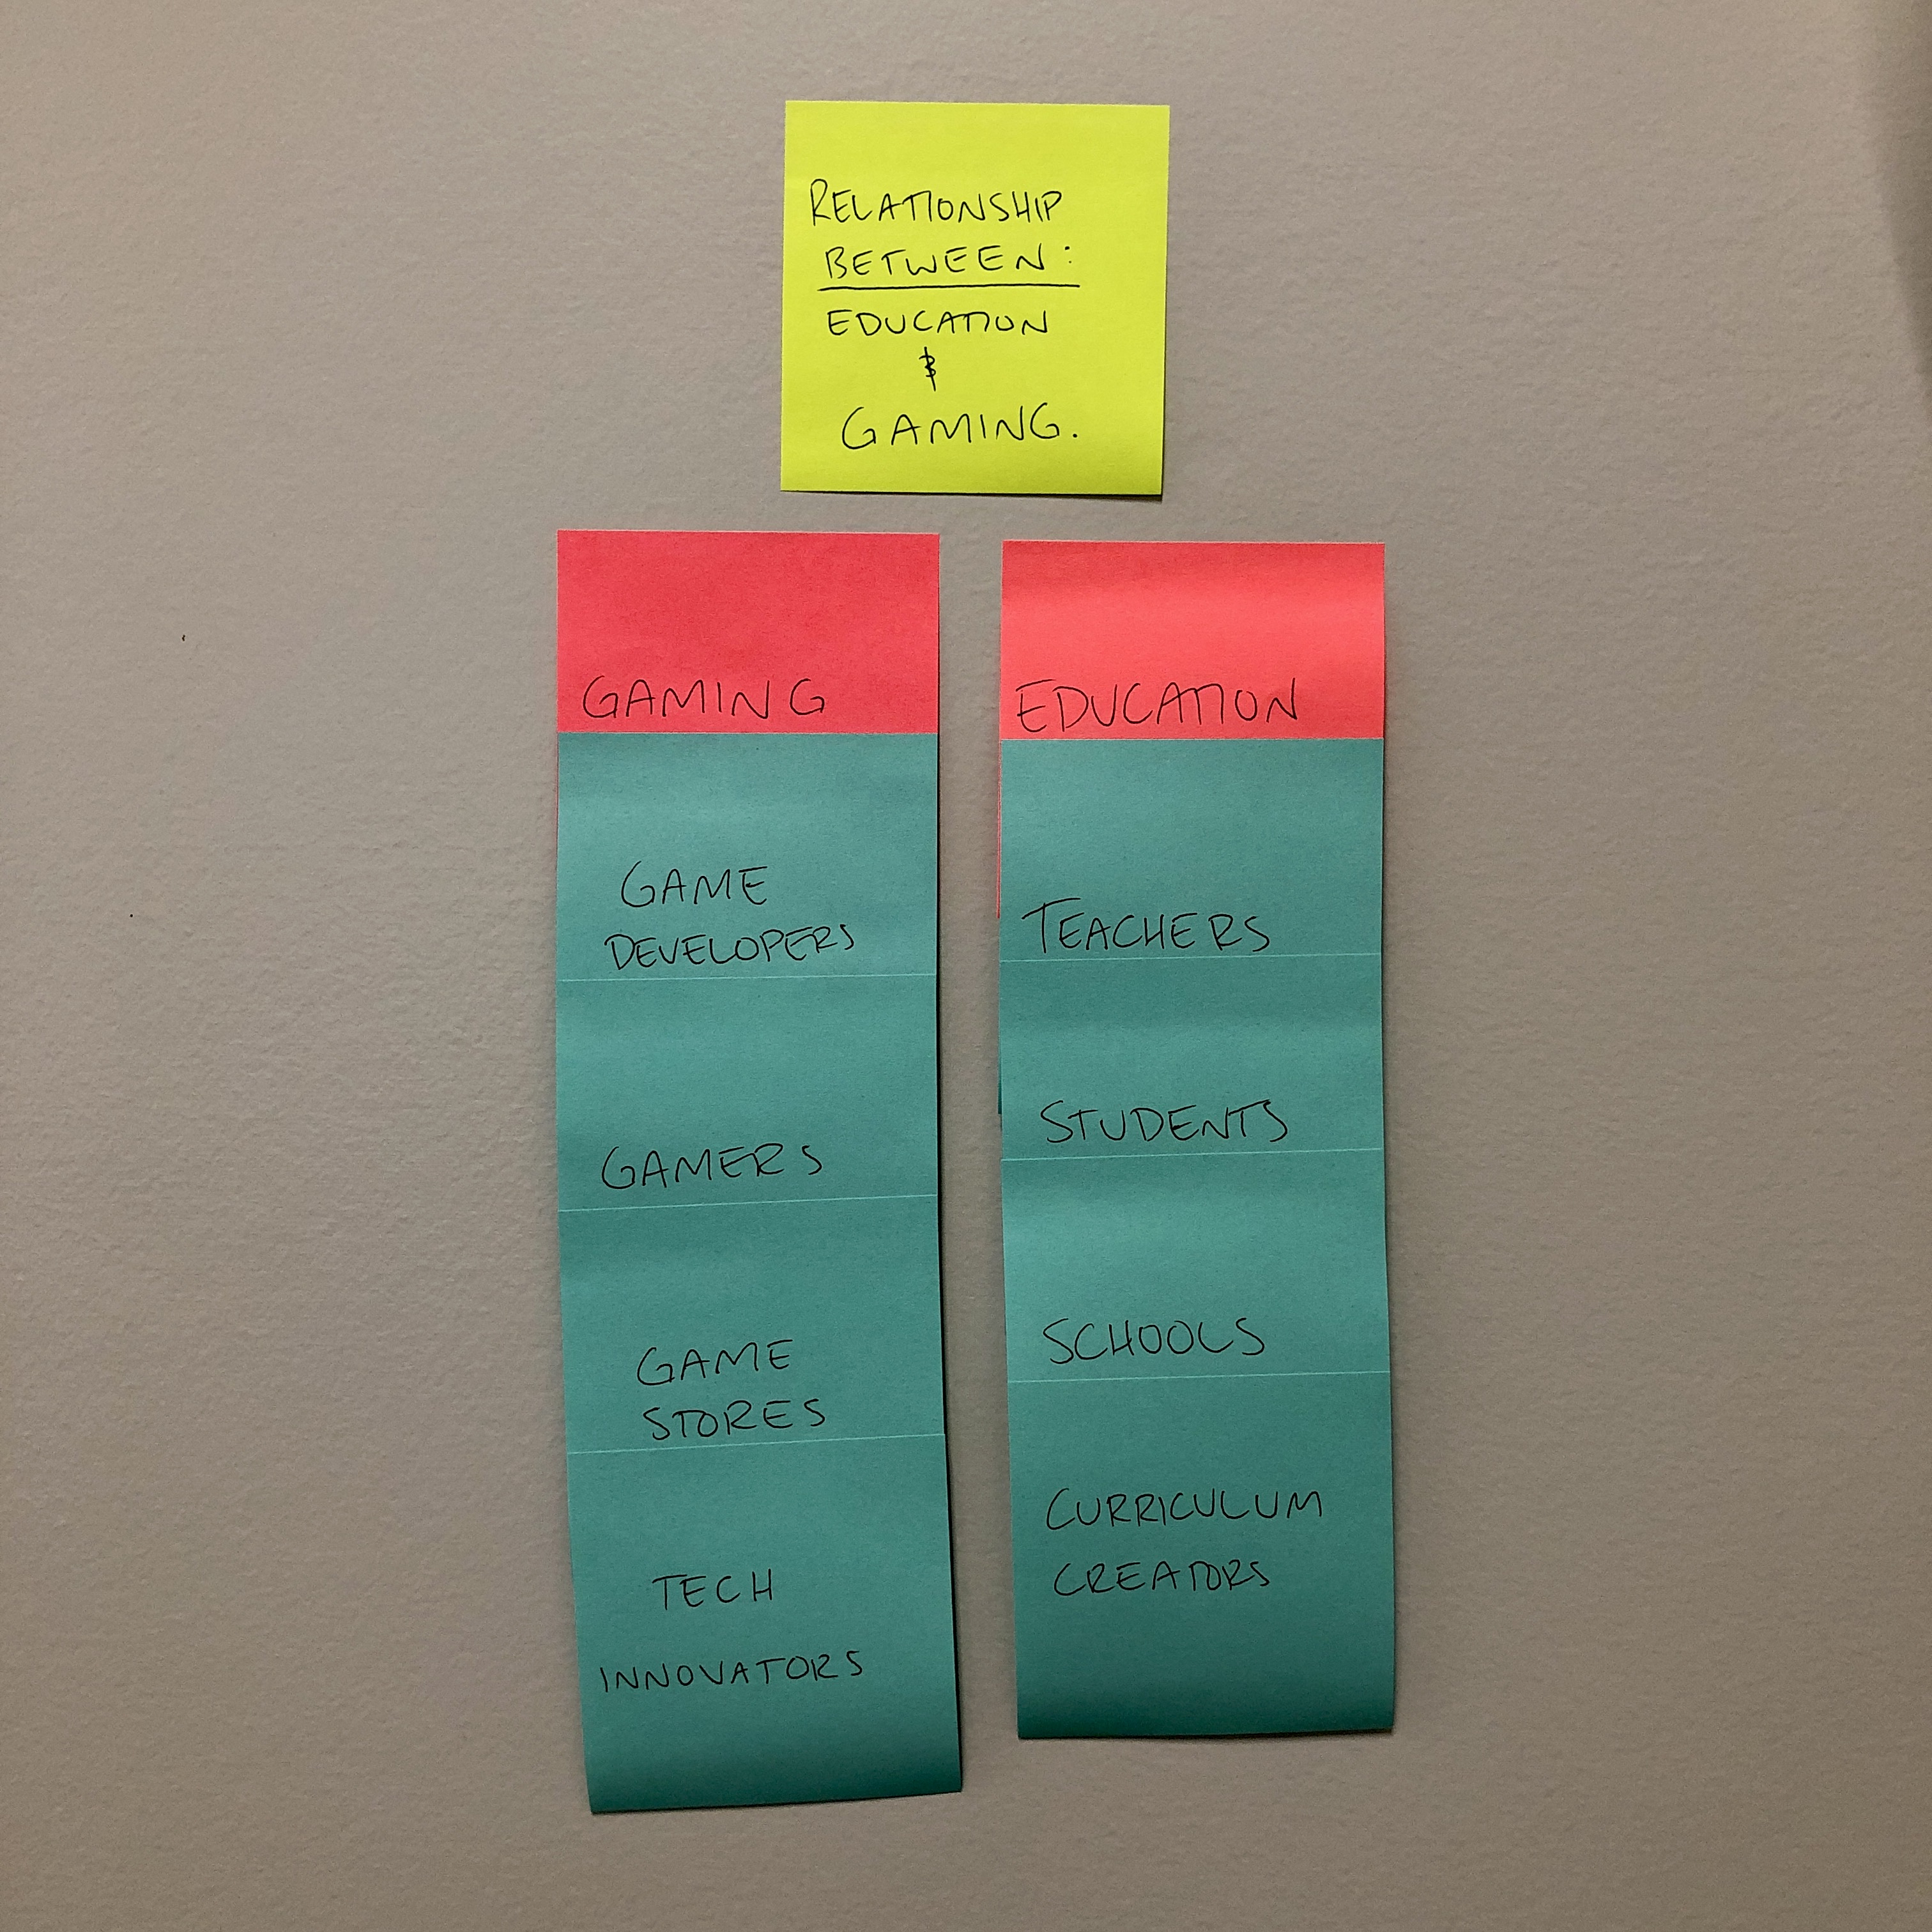 RELATIONSHIP
BETWEEN:
EDUCATION
&
GAMING.
GAMING
GAME
DEVELOPERS
GAMERS
GAME
STORES
TECH
INNOVATORS
EDUCATION
TEACHERS
STUDENTS
SCHOOLS
CURRICULUM
CREATORS